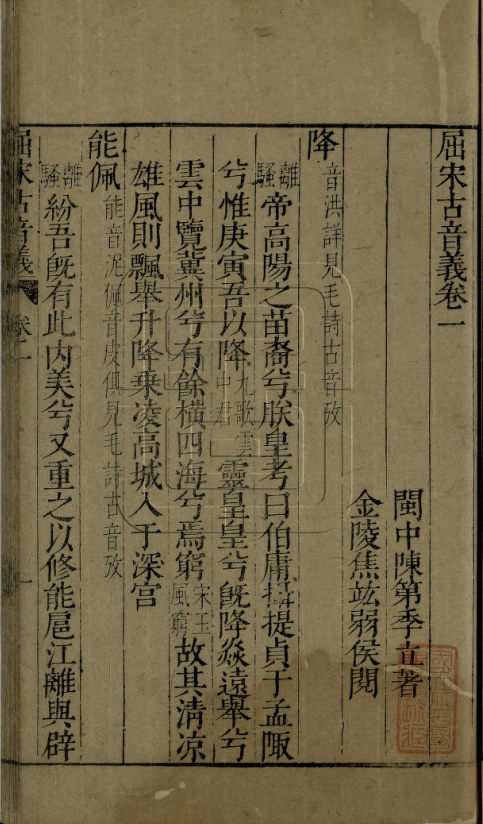 屈宋古音義卷一
閩中陳第季立著
金陵焦竑弱侯閱
降
音洪詳見毛詩古音攷
離騷帝高陽之苗裔兮朕皇考曰伯庸攝提貞于孟陬
兮惟庚寅吾以降九歌雲中君靈皇皇兮旣降猋遠舉兮
雲中覽冀州兮有餘橫四海兮焉窮宋玉風賦故其清凉
雄風則飄舉升降乗凌高城入于深宫
能佩
能音泥佩音皮俱見毛詩古音攷
離騷紛吾旣有此内美兮又重之以修能扈江離與辟
屈宋古音義 卷一 一